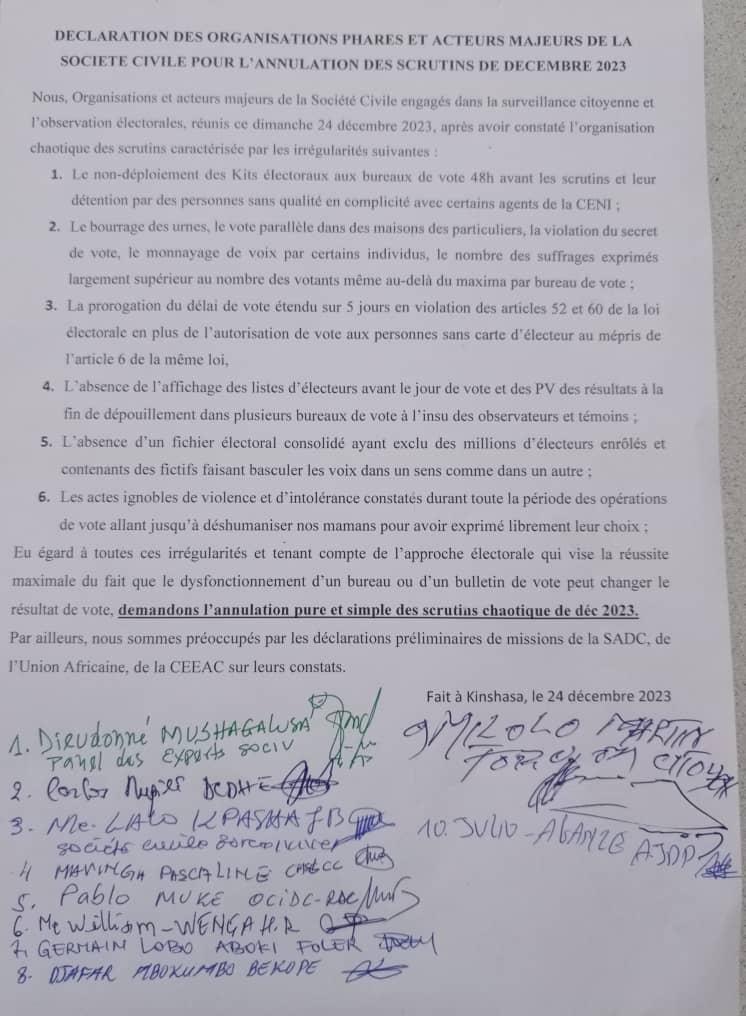 DECLARATION DES ORGANISATIONS PHARES ET ACTEURS MAJEURS DE LA
SOCIETE CIVILE POUR L'ANNULATION DES SCRUTINS DE DECEMBRE 2023
Nous, Organisations et acteurs majeurs de la Société Civile engagés dans la surveillance citoyenne et
l'observation électorales, réunis ce dimanche 24 décembre 2023, après avoir constaté l'organisation
chaotique des scrutins caractérisée par les irrégularités suivantes :
1. Le non-déploiement des Kits électoraux aux bureaux de vote 48h avant les scrutins et leur
détention par des personnes sans qualité en complicité avec certains agents de la CENI ;
2. Le bourrage des urnes, le vote parallèle dans des maisons des particuliers, la violation du secret
de vote, le monnayage de voix par certains individus, le nombre des suffrages exprimés
largement supérieur au nombre des votants même au-delà du maxima par bureau de vote ;
3. La prorogation du délai de vote étendu sur 5 jours en violation des articles 52 et 60 de la loi
électorale en plus de l'autorisation de vote aux personnes sans carte d'électeur au mépris de
l'article 6 de la même loi,
4. L'absence de l'affichage des listes d'électeurs avant le jour de vote et des PV des résultats à la
fin de dépouillement dans plusieurs bureaux de vote à l'insu des observateurs et témoins ;
5. L'absence d'un fichier électoral consolidé ayant exclu des millions d'électeurs enrôlés et
contenants des fictifs faisant basculer les voix dans un sens comme dans un autre ;
6. Les actes ignobles de violence et d'intolérance constatés durant toute la période des opérations
de vote allant jusqu'à déshumaniser nos mamans pour avoir exprimé librement leur choix ;
Eu égard à toutes ces irrégularités et tenant compte de l'approche électorale qui vise la réussite
maximale du fait que le dysfonctionnement d'un bureau ou d'un bulletin de vote peut changer le
résultat de vote, demandons l'annulation pure et simple des scrutins chaotique de déc 2023.
Par ailleurs, nous sommes préoccupés par les déclarations préliminaires de missions de la SADC, de
l'Union Africaine, de la CEEAC sur leurs constats.
Fait à Kinshasa, le 24 décembre 2023
1. Dieudonné MUSHAGALUSA
Panel des Experts SOCIV
2. Carlos
3. Me. LATO KPASHA JB
société civile
4 MAVINGA PASCALINE
5. Pablo MUKE OCIDC-RDC
6. Me William-WENGA H.R
7. GERMAIN LOBO ABOKI FOLER
8. DJAFAR MBOKUMBO BEKOPE
9 MILOLO MARTIN
10. JULIO-ABANZE AJDP